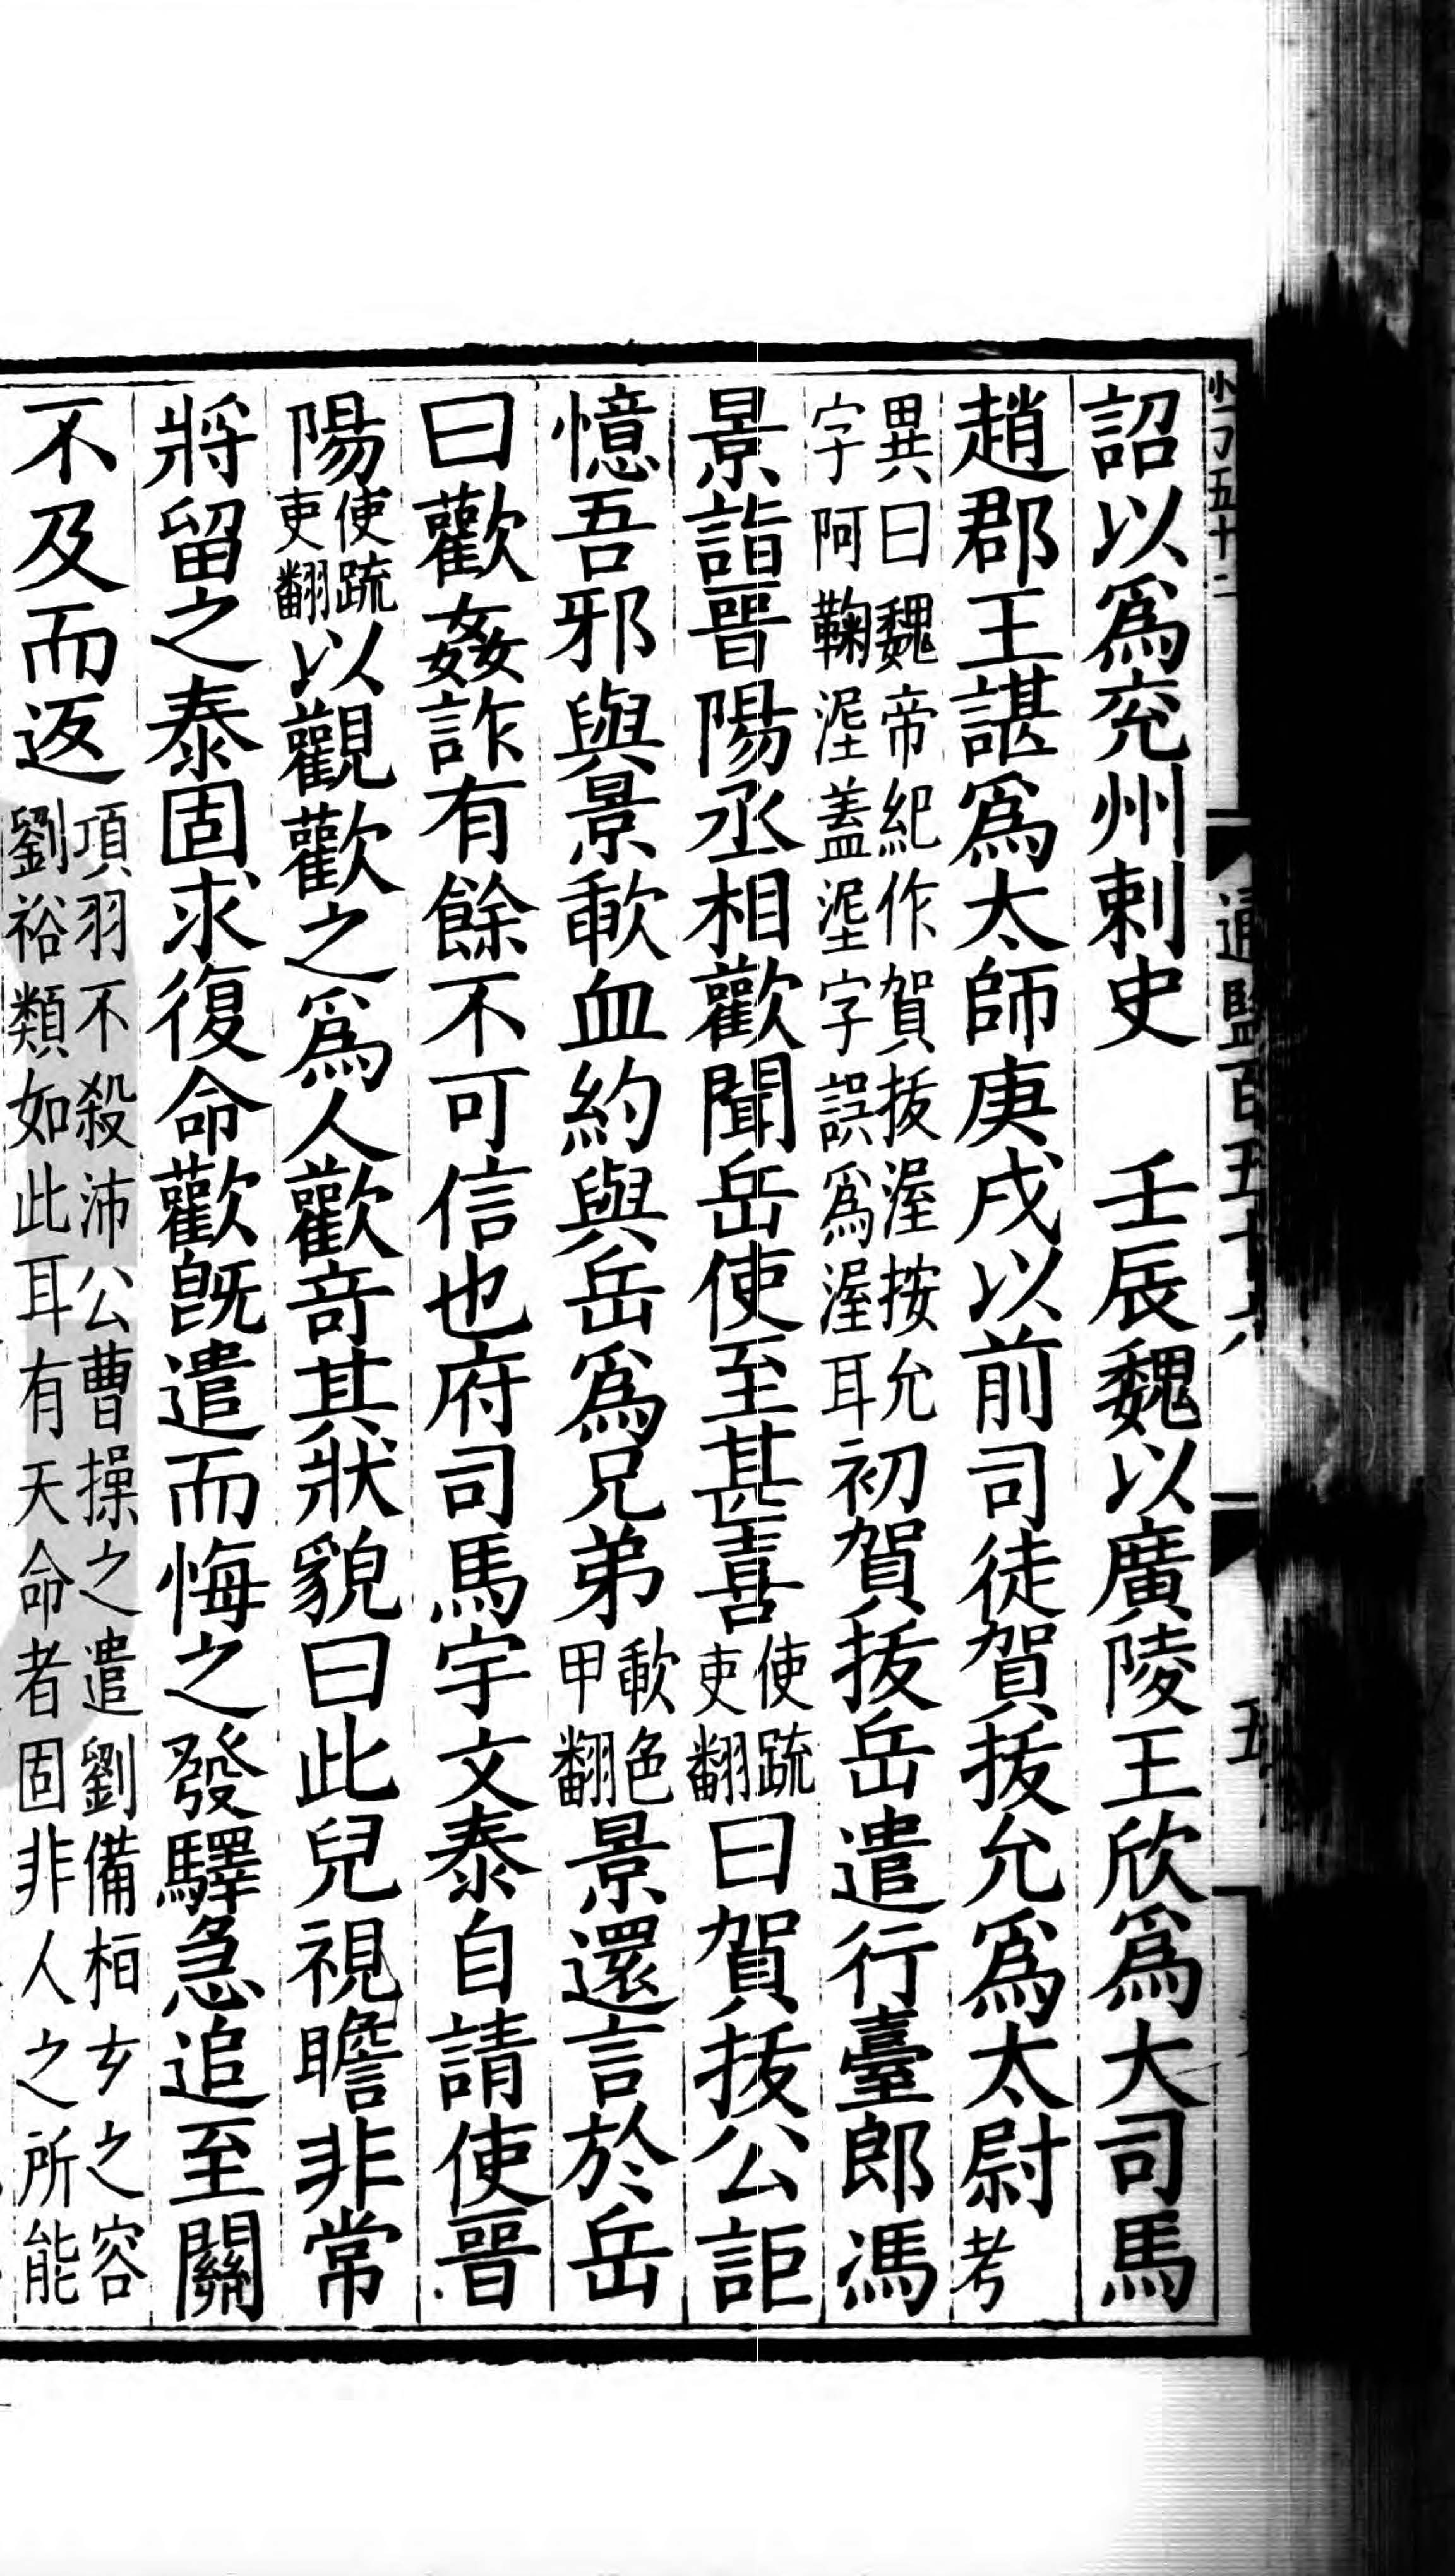 詔以爲兖州刺史　壬辰魏以廣陵王欣爲大司馬
趙郡王諶爲太師庚戌以前司徒賀拔允爲太尉考
異曰魏帝紀作賀拔渥按允
字阿鞠渥蓋渥字誤爲渥耳初賀拔岳遣行臺郎馮
景詣晉陽丞相歡聞岳使至甚喜使疏
吏翻曰賀拔公詎
憶吾邪與景歃血約與岳爲兄弟歃色
甲翻景還言於岳
曰歡姦詐有餘不可信也府司馬宇文泰自請使晉
陽使疏
吏翻以觀歡之爲人歡竒其狀貌曰此兒視瞻非常
將留之泰固求復命歡旣遣而悔之發驛急追至關
不及而返項羽不殺沛公曹操之遣劉備桓玄之容
劉裕類如此耳有天命者固非人之所能
五十二
通鑑百五十六
五